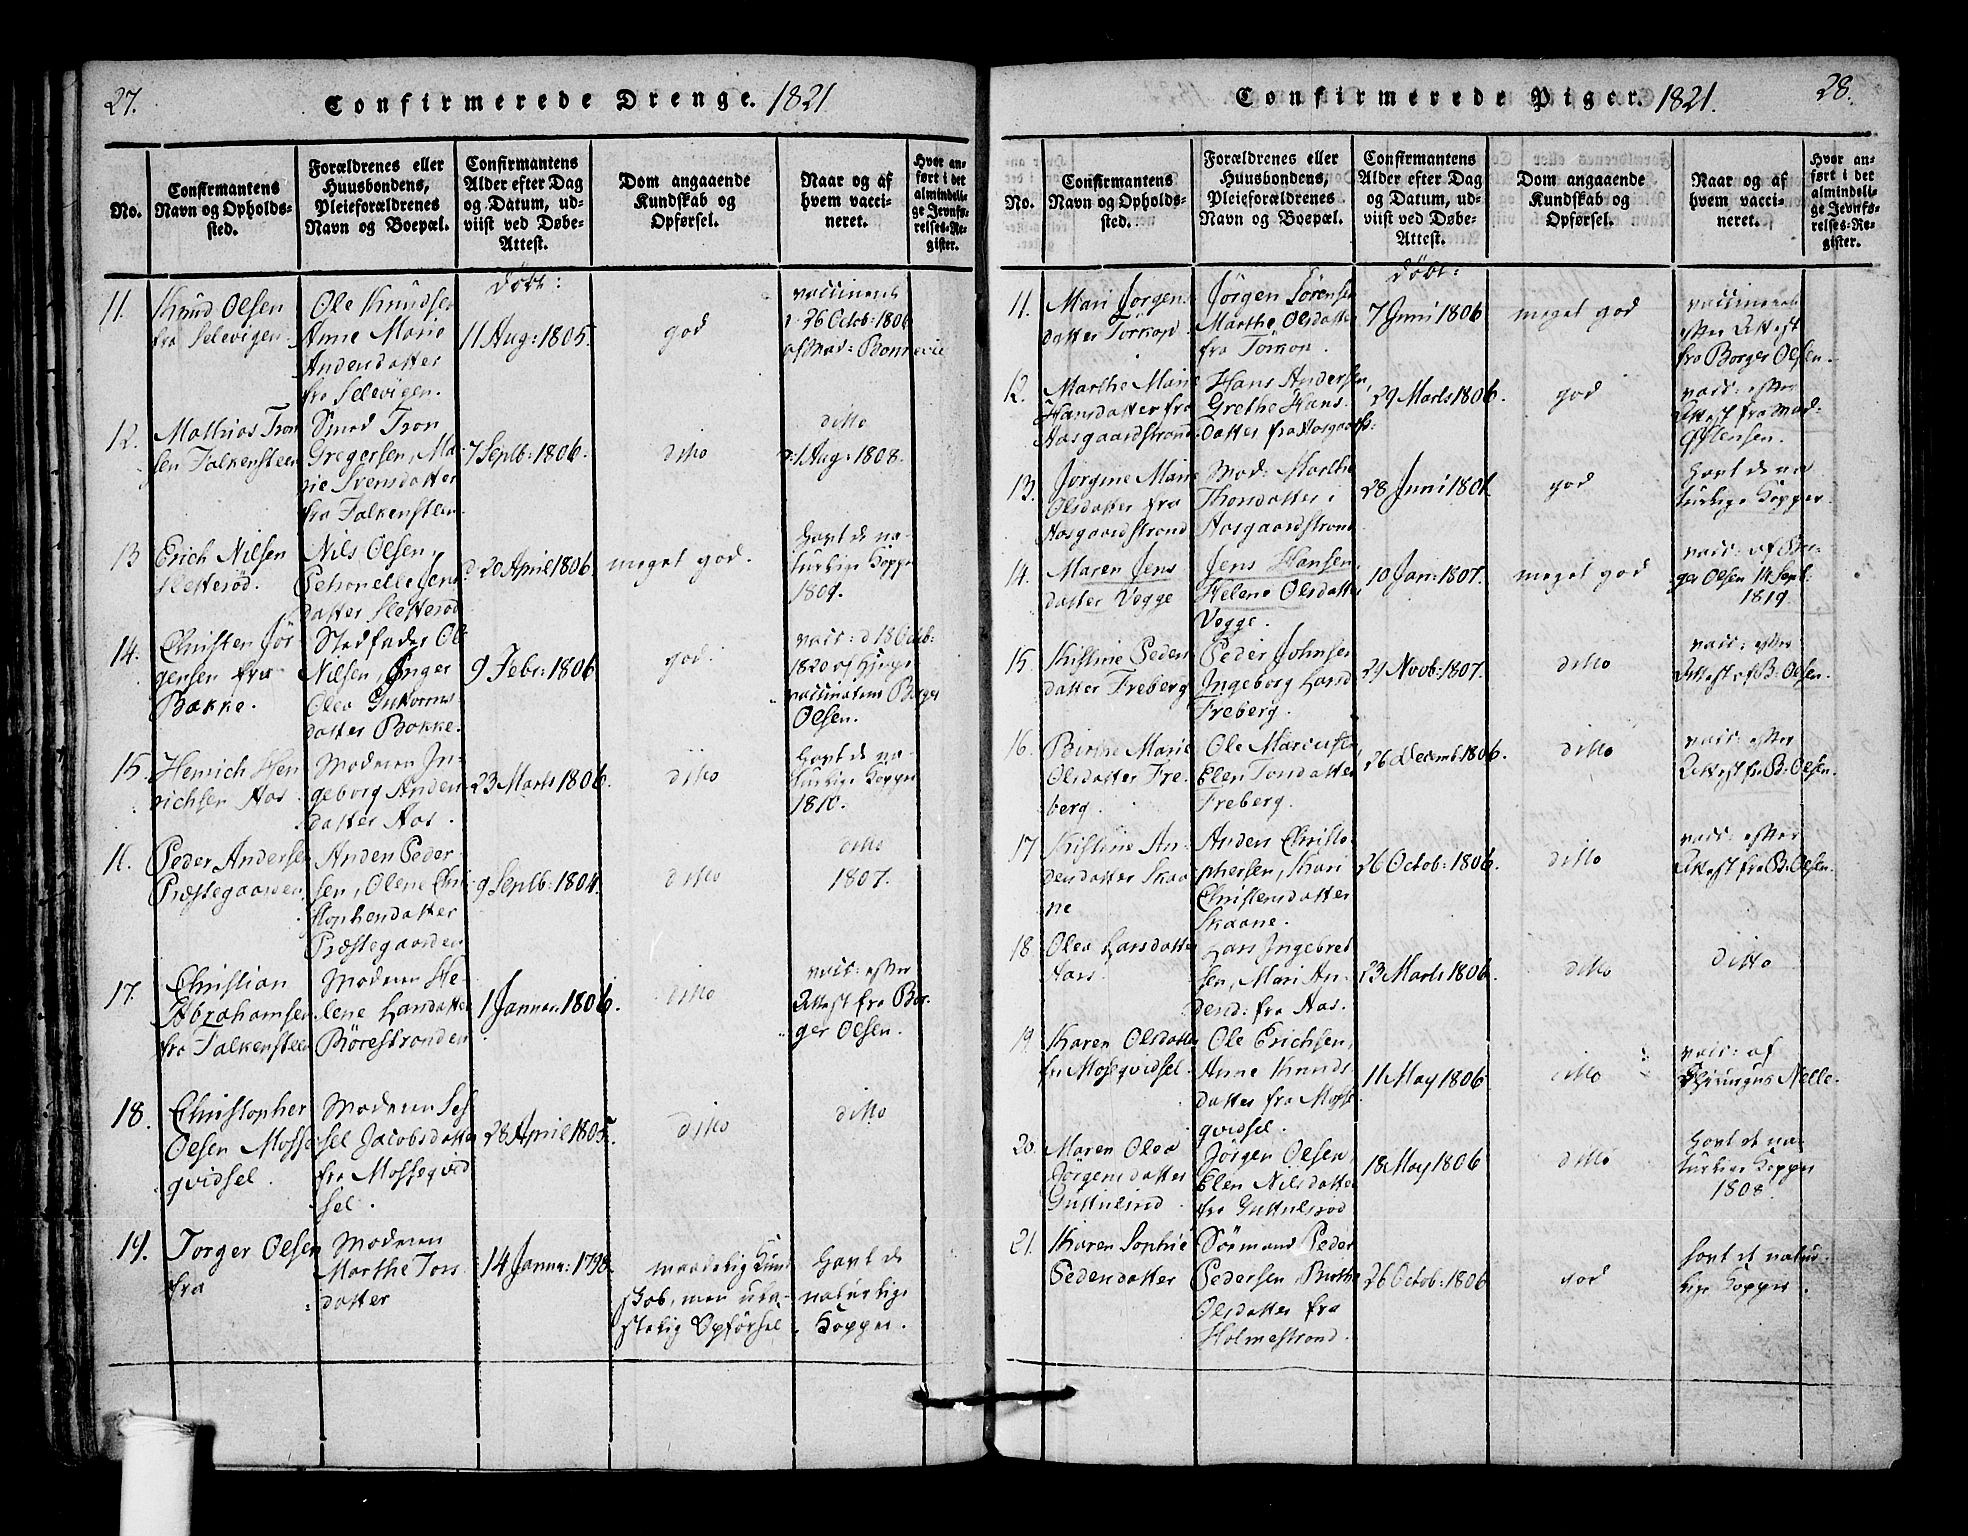 27.
Confirmerede Drenge. 1821
No.
Confirmantens
Navn og Opholds-
sted.
Forældrenes eller
Huusbondens,
Pleieforældrenes
Navn og Boepæl.
Confirmantens
Alder efter Dag
og Datum, ud-
viist ved Døbe-
Attest.
Dom angaaende
Kundskab og
Opførsel.
Naar og af
hvem vacci-
neret.
Hvor an-
ført i det
almindeli-
ge Jevnfø-
relses-Re-
gister.
døbt:
11.
Knud Olsen
fra Selevigen.
Ole Knudsen
Anne Marie
Andersdatter
fra Selevigen.
11 Aug: 1805.
god
vaccineret
d. 26 Octob: 1806
af Mad: Bonnevie
12.
Mathias Tron
sen Falkensteen
Smed Tron
Gregersen, Ma-
rie Svensdatter
fra Falkensteen
7 Septb: 1806.
ditto
ditto
d: 1 Aug: 1808.
13
Erich Nilsen
Sletterød.
Nils Olsen,
Petronelle Jens
datter Sletterød
d. 20 April 1806.
meget god.
havt de na-
turlige Kopper
1809.
14.
Christen Jör
gensen fra
Bakke.
Stedfader Ole
Nilsen, Inger
Olea Guttorms
datter Bakke.
9 Febr: 1806
god.
vacc: d 18 Octb:
1820 af Hjelpe
vaccinateur Borger
Olsen.
15.
Henrich Hen
richsen Aas.
Moderen In-
geborg Anders
datter Aas.
23 Marts 1806.
ditto
havt de na-
turlige Kopper
1810.
16.
Peder Andersen
Præstegaarden
Anders Peder-
sen, Olene Chri
stophersdatter
Præstegaarden
9 Septb: 1804.
ditto
ditto
1807.
17.
Christian
Abrahamsen
fra Falkensteen
Moderen He-
lene Larsdatter
Börrestranden
1 Januar 1806.
ditto
vacc: efter
Attest fra Bor
ger Olsen.
18.
Christopher
Olsen Mosse
qvidsel.
Moderen Sis
sel Jacobsdatter
fra Mosseqvid
sel.
28 April 1805.
ditto
ditto
19.
Torger Olsen
fra
Moderen
Marthe Tors
datter
14 Januar: 1798.
maadelig Kund
skab, men ula-
stelig Opførsel
havt de
naturlige
Kopper.
28.
Confirmerede Piger. 1821.
No.
Confirmantens
Navn og Opholds-
sted.
Forældrenes eller
Huusbondens,
Pleieforældrenes
Navn og Boepæl.
Confirmantens
Alder efter Dag
og Datum, ud-
viist ved Døbe-
Attest.
Dom angaaende
Kundskab og
Opførsel.
Naar og af
hvem vacci-
neret.
Hvor an-
ført i det
almindeli-
ge Jevnfø-
relses-Re-
gister.
døbt:
11.
Mari Jørgens
datter Torkop
Jørgen Sørensen
Marthe Olsdatter
fra Torkop.
7 Juni 1806
meget god
vaccineret
efter Attest
fra Borger Olsen.
12.
Marthe Marie
Hansdatter fra
Aasgaardstrand
Hans Andersen,
Grethe Hans
datter fra Aasgaardst:
29 Marts 1806.
god
vacc: efter
Attest fra Mad:
Østensen.
13.
Jørgine Marie
Olsdatter fra
Aasgaardstrand
Mod: Marthe
Thorsdatter i
Aasgaardstrand
28 Juni 1801.
god
havt de na
turlige Kopper
14.
Maren Jens
datter Vegge
Jens Hansen,
Helene Olsdatter
Vegge.
10 Jan: 1807.
meget god
vacc: af Bor-
ger Olsen 14 Sept.
1819.
15.
Kistine Peders
datter Freberg
Peder Johnsen
Ingeborg Larsd
Freberg.
29 Novb: 1807.
ditto
vacc: efter
Attest af B: Olsen.
16.
Birthe Marie
Olsdatter Fre-
berg.
Ole Mariusen
Elen Torsdatter
Freberg.
26 Decemb 1806.
ditto
vacc: efter
Attest fra B: Olsen.
17
Kistine An-
dersdatter Skaa-
ne
Anders Christo-
phersen, Kari
Christensdatter
Skaane.
26 Octob: 1806.
ditto
vacc: efter
Attest fra B: Olsen.
18.
Olea Larsdatter
Aas.
Lars Ingebret
sen, Mari An-
dersd: fra Aas.
23 Marts 1806.
ditto
ditto
19.
Karen Olsdatter
fra Mosseqvidsel.
Ole Erichsen,
Anne Knuds
datter fra Mosse
qvidsel.
11 May 1806
ditto
vacc: af
Chirurgus Nelle
20.
Maren Olea
Jörgensdatter
Guttulsrød
Jörgen Olsen
Elen Nilsdatter
fra Guttulsrød
18 May 1806
ditto
havt de na-
turlige Kopper
1808.
21.
Karen Sophie
Pedersdatter
Sørmand Peder
Pedersen, Birthe
Olsdatter fra
Holmestrand.
26 Octob: 1806
god
havt de natur-
lige Kopper.